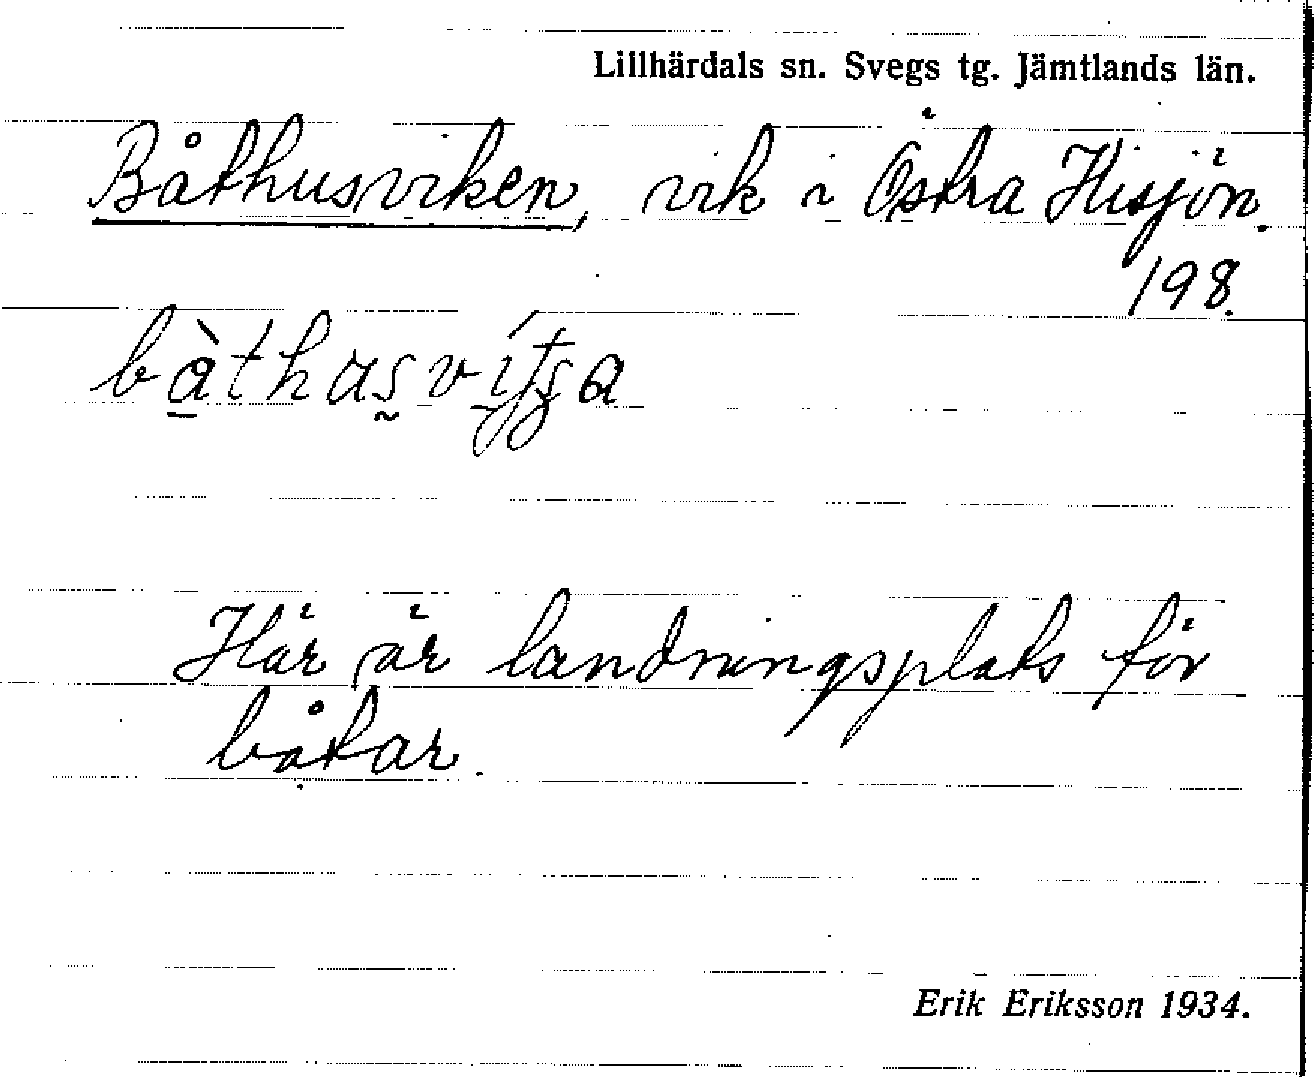 Lillhärdals sn. Svegs tg. Jämtlands län.
Båthusviken, vik i Östra Hisjön.
198.
Här är landningsplats för
båtar.
Erik Eriksson 1934.